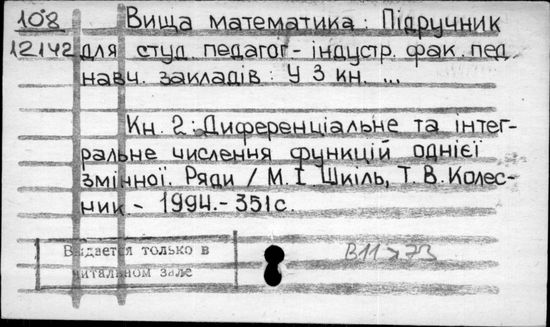 108
12142
Вища математика: Підручник
для студ. педагог-індустр. фак. пед.
навч. закладів: У 3 кн. ...
Кн. 2: Диференціальне та інтег-
ральне числення функцій однієї
змінної. Ряди / М. І. Шкіль, Т. В. Колес-
ник. - 1994. - 351 с.
Выдается только в
читальном зале